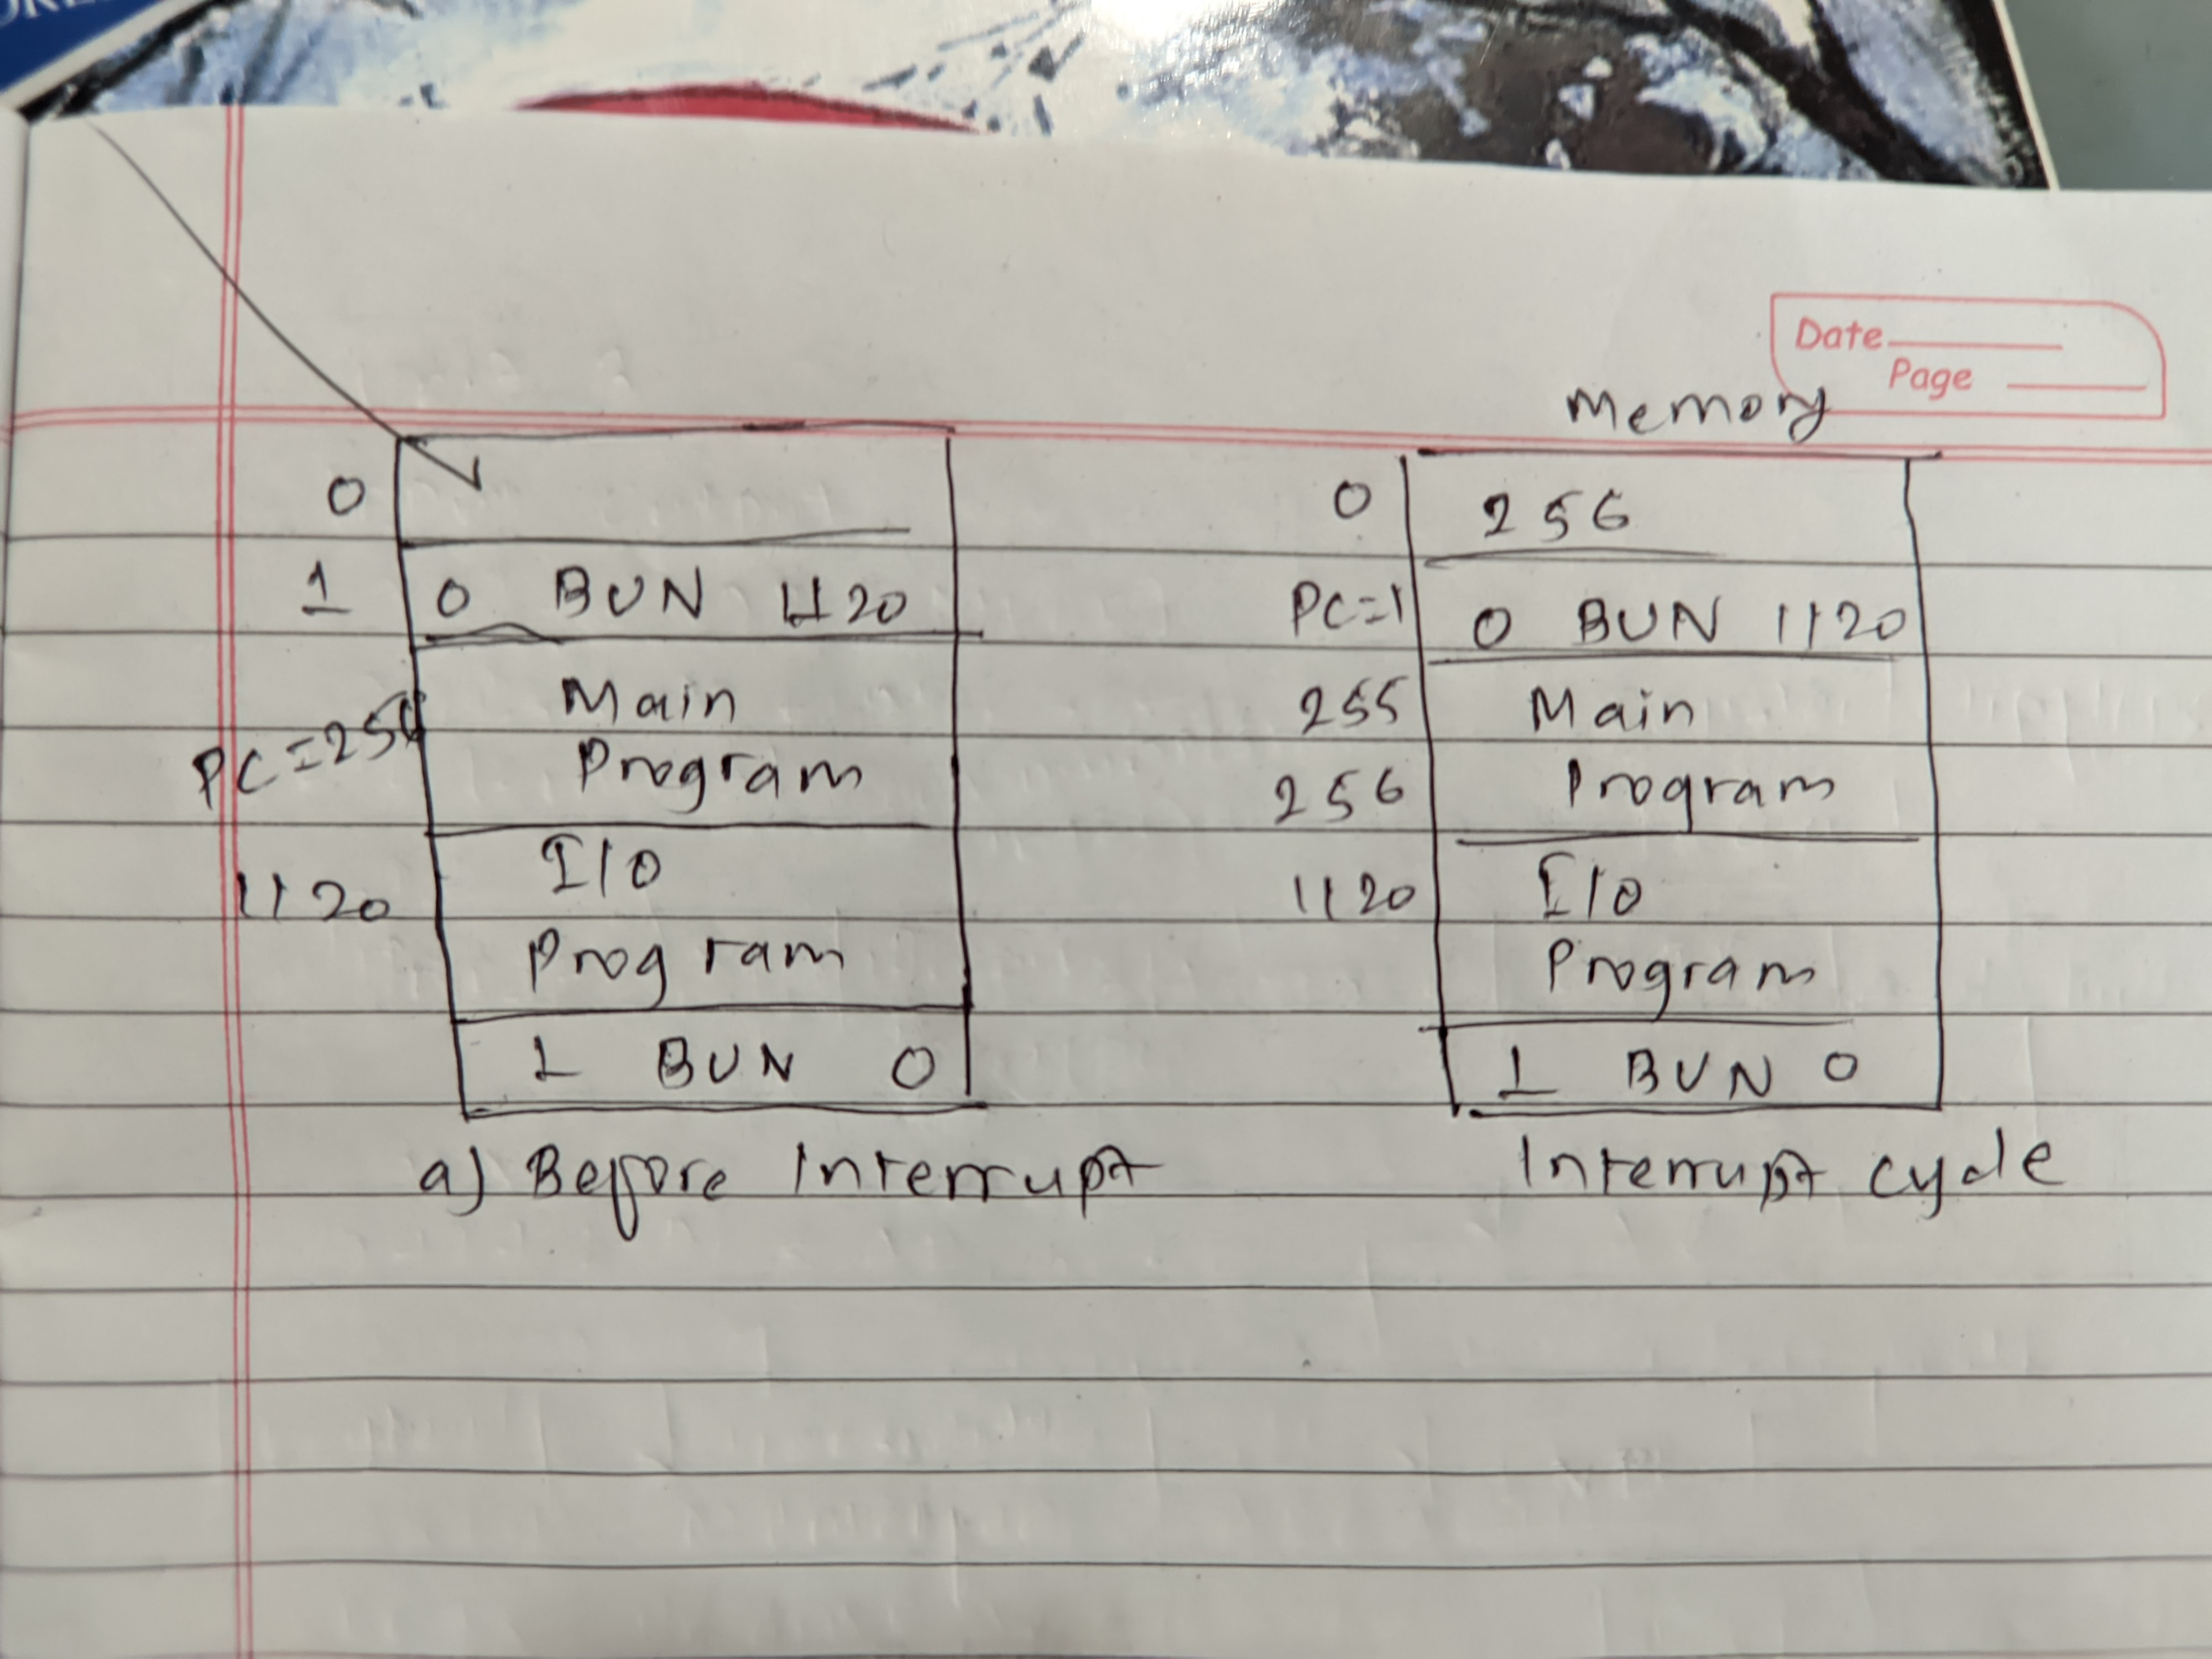 Date
Page
Memory
0
1 0 BUN 1120
Main
PC=256 Program
I/O
1120
Program
1 BUN 0
a) Before Interrupt
0 256
PC=1 0 BUN 1120
255 Main
256 Program
1120 I/O
Program
1 BUN 0
Interrupt cycle